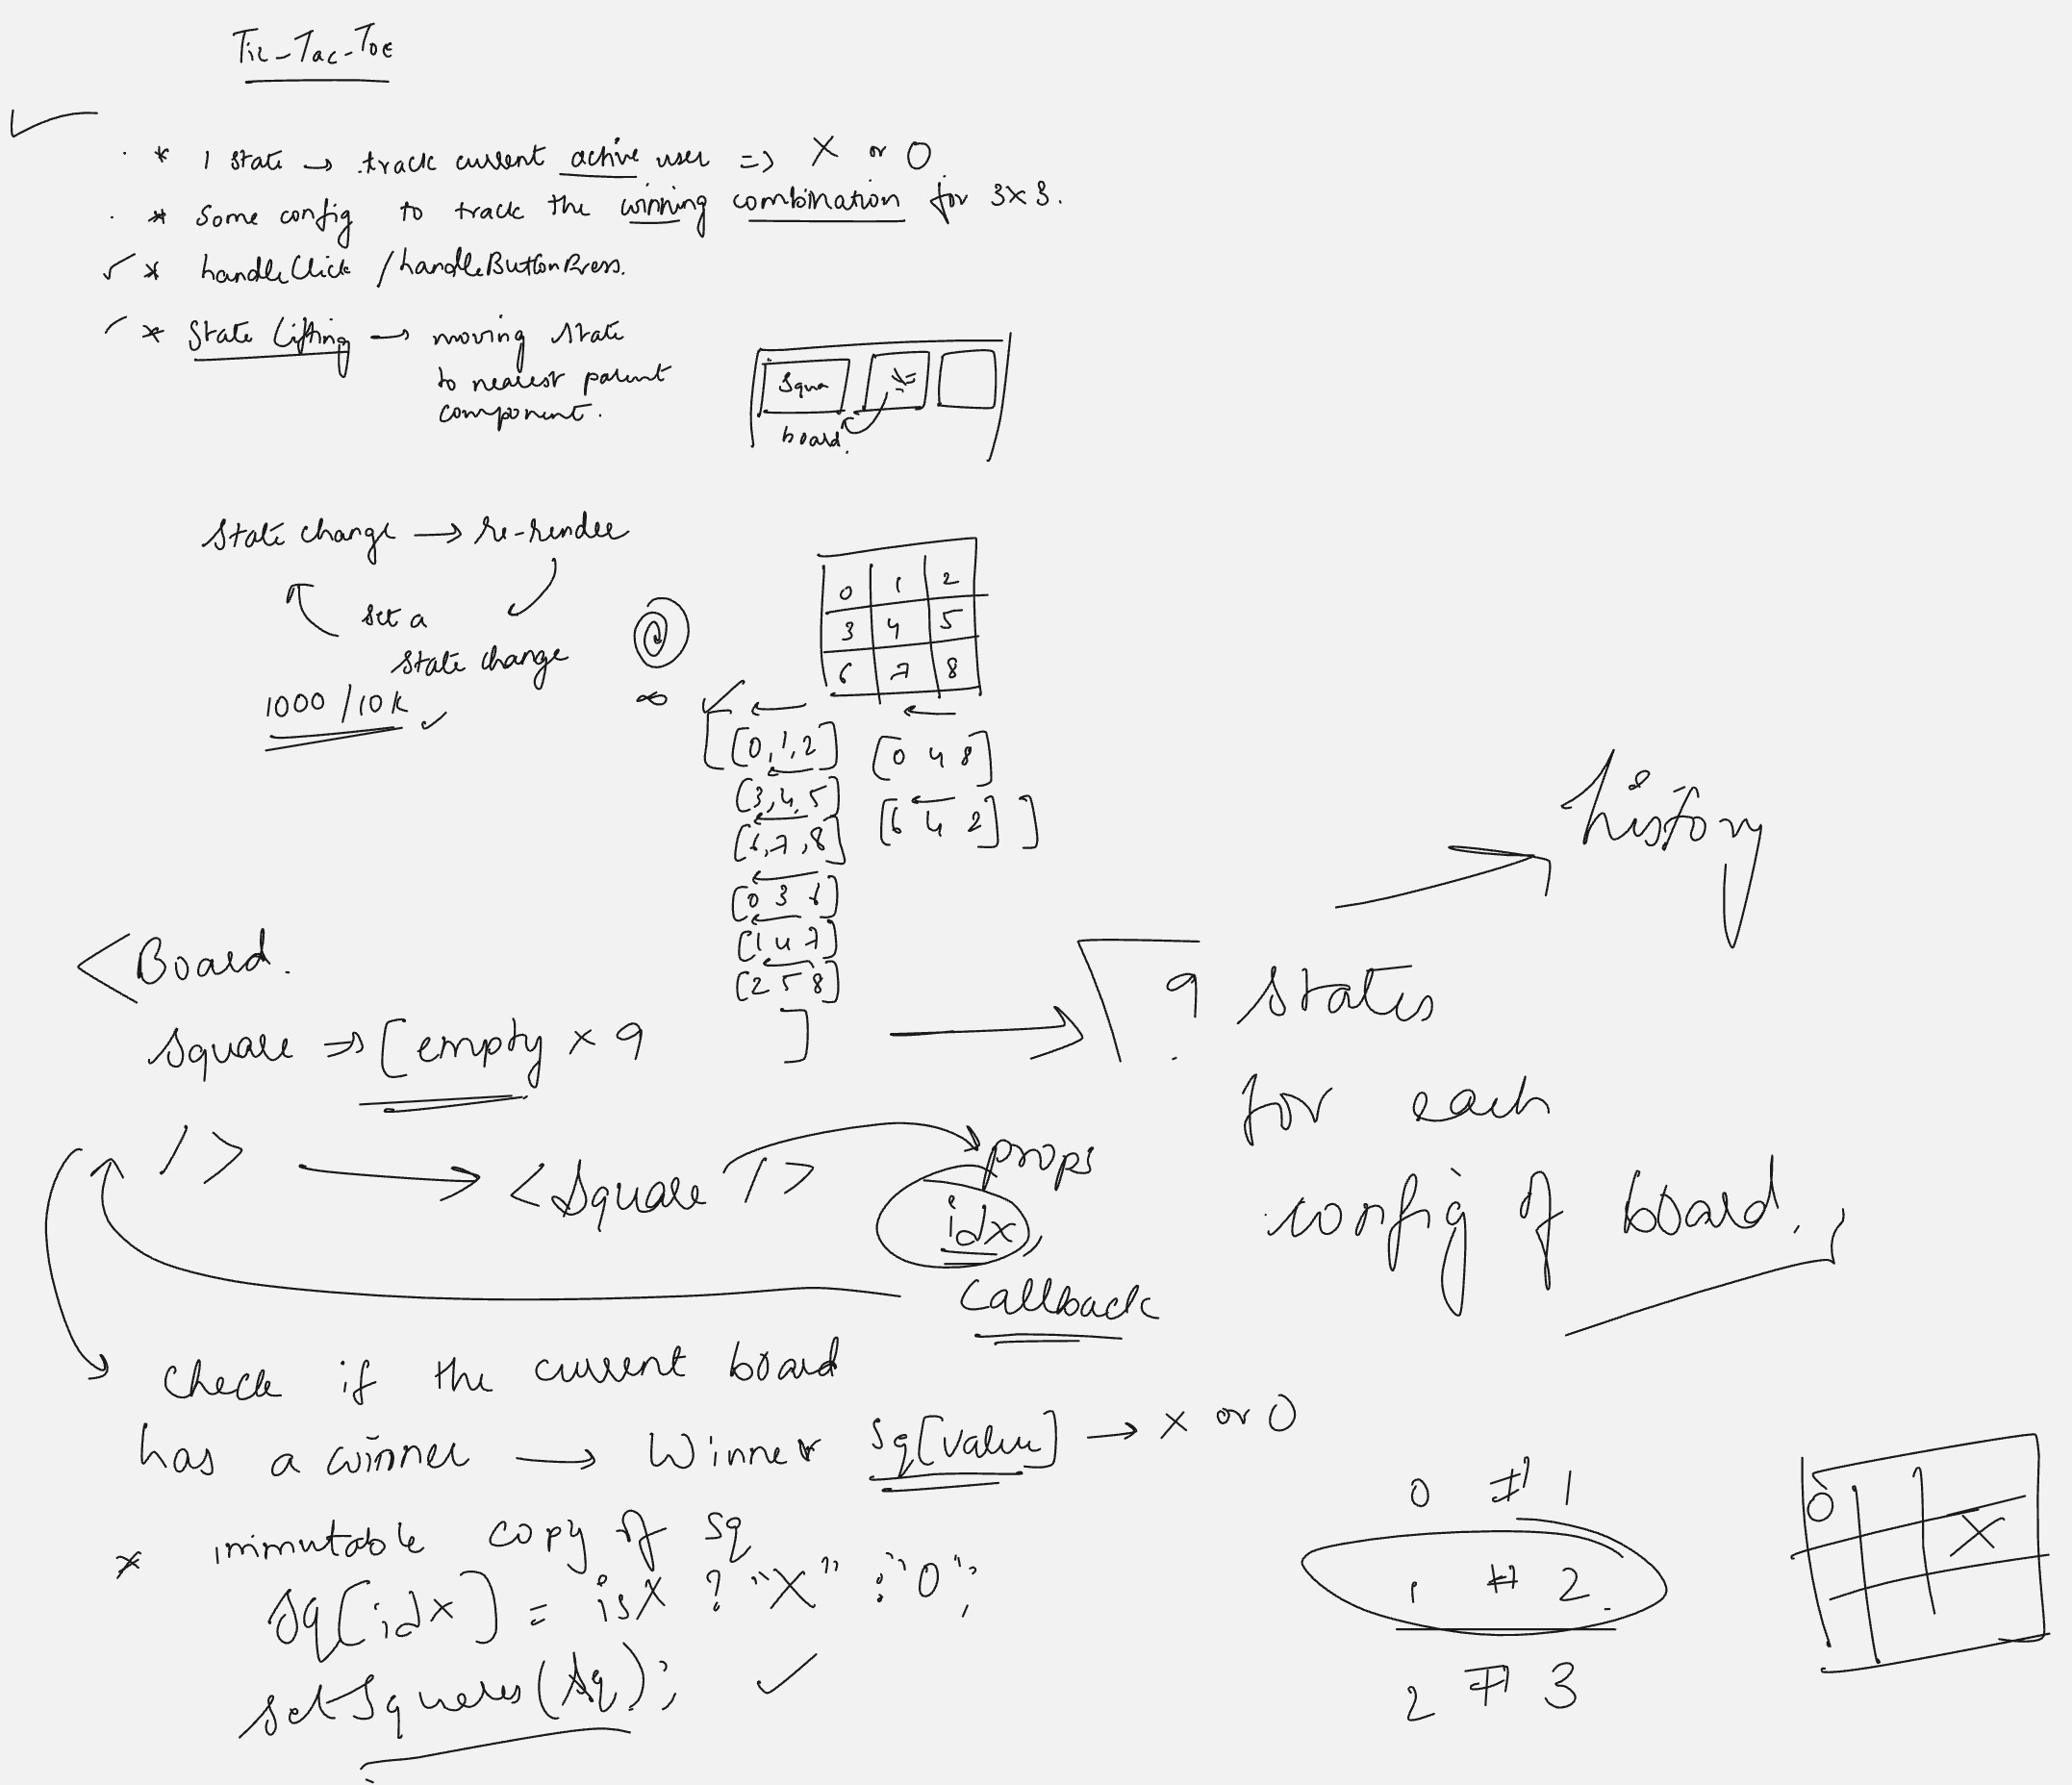 Tic-Tac-Toe
* 1 state → track current active user => X or O
* Some config to track the winning combination for 3x3.
* handleClick / handleButtonPress.
* State Lifting → moving state
to nearest parent
component.
Squa
board.
State change → re-render
set a
state change
1000 / 10k
∞
0 1 2
3 4 5
6 7 8
[[0,1,2] [0 4 8]
[3,4,5]
[6 4 2] ]
[6,7,8]
[0 3 6]
[1 4 7]
[2 5 8]
history
<Board.
square => [empty x 9 ] → 9 states
for each
config of board.
/> → <Square /> props
idx,
callback
check if the current board
has a winner → Winner sq[value] → X or O
* immutable copy of sq
sq[idx] = isX ? "X" : "O";
setSquares(sq);
0 # 1
1 # 2.
2 # 3
O
X